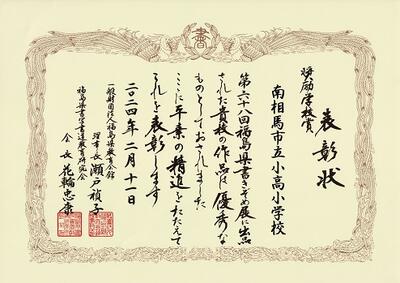 書
表彰状
奨励学校賞
南相馬市立小高小学校
第六十八回福島県書きぞめ展に出品
された貴校の作品は優秀な
ものとしておされました
ここに平素の精進をたたえて
これを表彰します
二〇二四年二月十一日
一般財団法人福島県教育会館
理事長 瀬戸禎子
福島県書写書道教育研究会
会長 花輪忠康